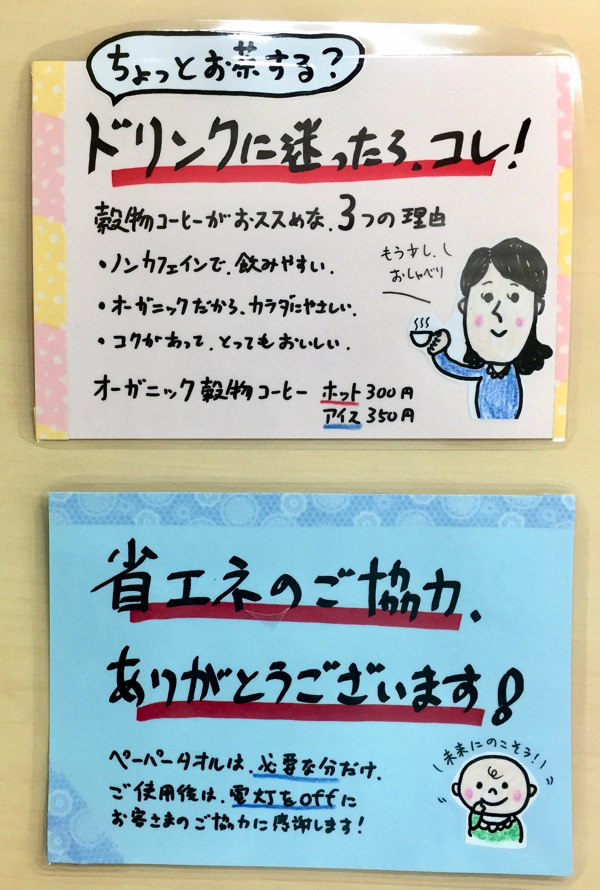 ちょっとお茶する？
ドリンクに迷ったら、コレ！
穀物コーヒーがおススメな、3つの理由
・ノンカフェインで、飲みやすい。
・オーガニックだから、カラダにやさしい。
・コクがあって、とってもおいしい。
もう少し、
おしゃべり
オーガニック穀物コーヒー ホット 300円
アイス 350円
省エネのご協力、
ありがとうございます！
ペーパータオルは、必要な分だけ、
ご使用後は、電灯をoffに
お客さまのご協力に感謝します！
未来にのこそう！